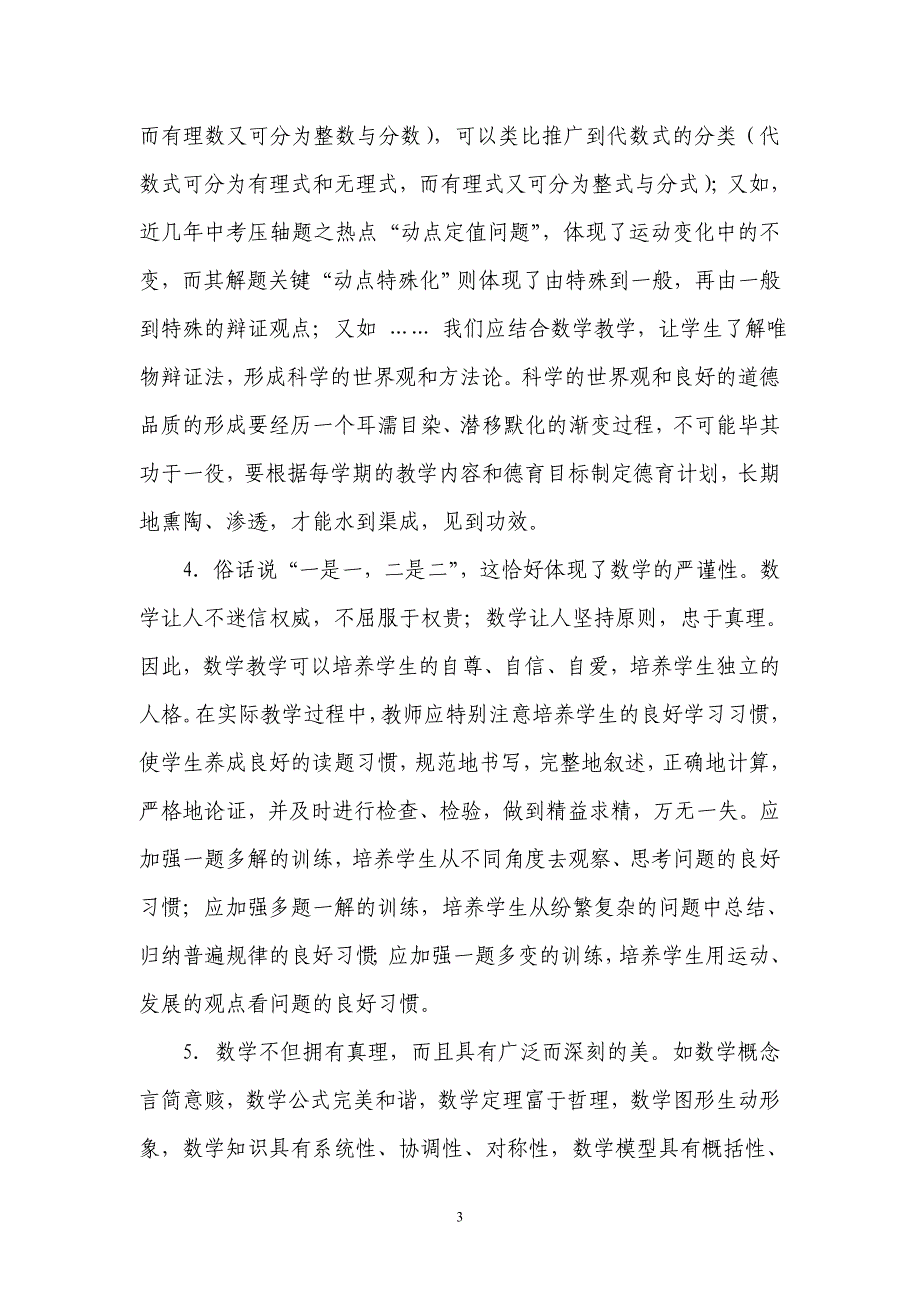 而有理数又可分为整数与分数)，可以类比推广到代数式的分类(代
数式可分为有理式和无理式，而有理式又可分为整式与分式)；又如，
近几年中考压轴题之热点“动点定值问题”，体现了运动变化中的不
变，而其解题关键“动点特殊化”则体现了由特殊到一般，再由一般
到特殊的辩证观点；又如 …… 我们应结合数学教学，让学生了解唯
物辩证法，形成科学的世界观和方法论。科学的世界观和良好的道德
品质的形成要经历一个耳濡目染、潜移默化的渐变过程，不可能毕其
功于一役，要根据每学期的教学内容和德育目标制定德育计划，长期
地熏陶、渗透，才能水到渠成，见到功效。
4．俗话说“一是一，二是二”，这恰好体现了数学的严谨性。数
学让人不迷信权威，不屈服于权贵；数学让人坚持原则，忠于真理。
因此，数学教学可以培养学生的自尊、自信、自爱，培养学生独立的
人格。在实际教学过程中，教师应特别注意培养学生的良好学习习惯，
使学生养成良好的读题习惯，规范地书写，完整地叙述，正确地计算，
严格地论证，并及时进行检查、检验，做到精益求精，万无一失。应
加强一题多解的训练，培养学生从不同角度去观察、思考问题的良好
习惯；应加强多题一解的训练，培养学生从纷繁复杂的问题中总结、
归纳普遍规律的良好习惯；应加强一题多变的训练，培养学生用运动、
发展的观点看问题的良好习惯。
5．数学不但拥有真理，而且具有广泛而深刻的美。如数学概念
言简意赅，数学公式完美和谐，数学定理富于哲理，数学图形生动形
象，数学知识具有系统性、协调性、对称性，数学模型具有概括性、
3